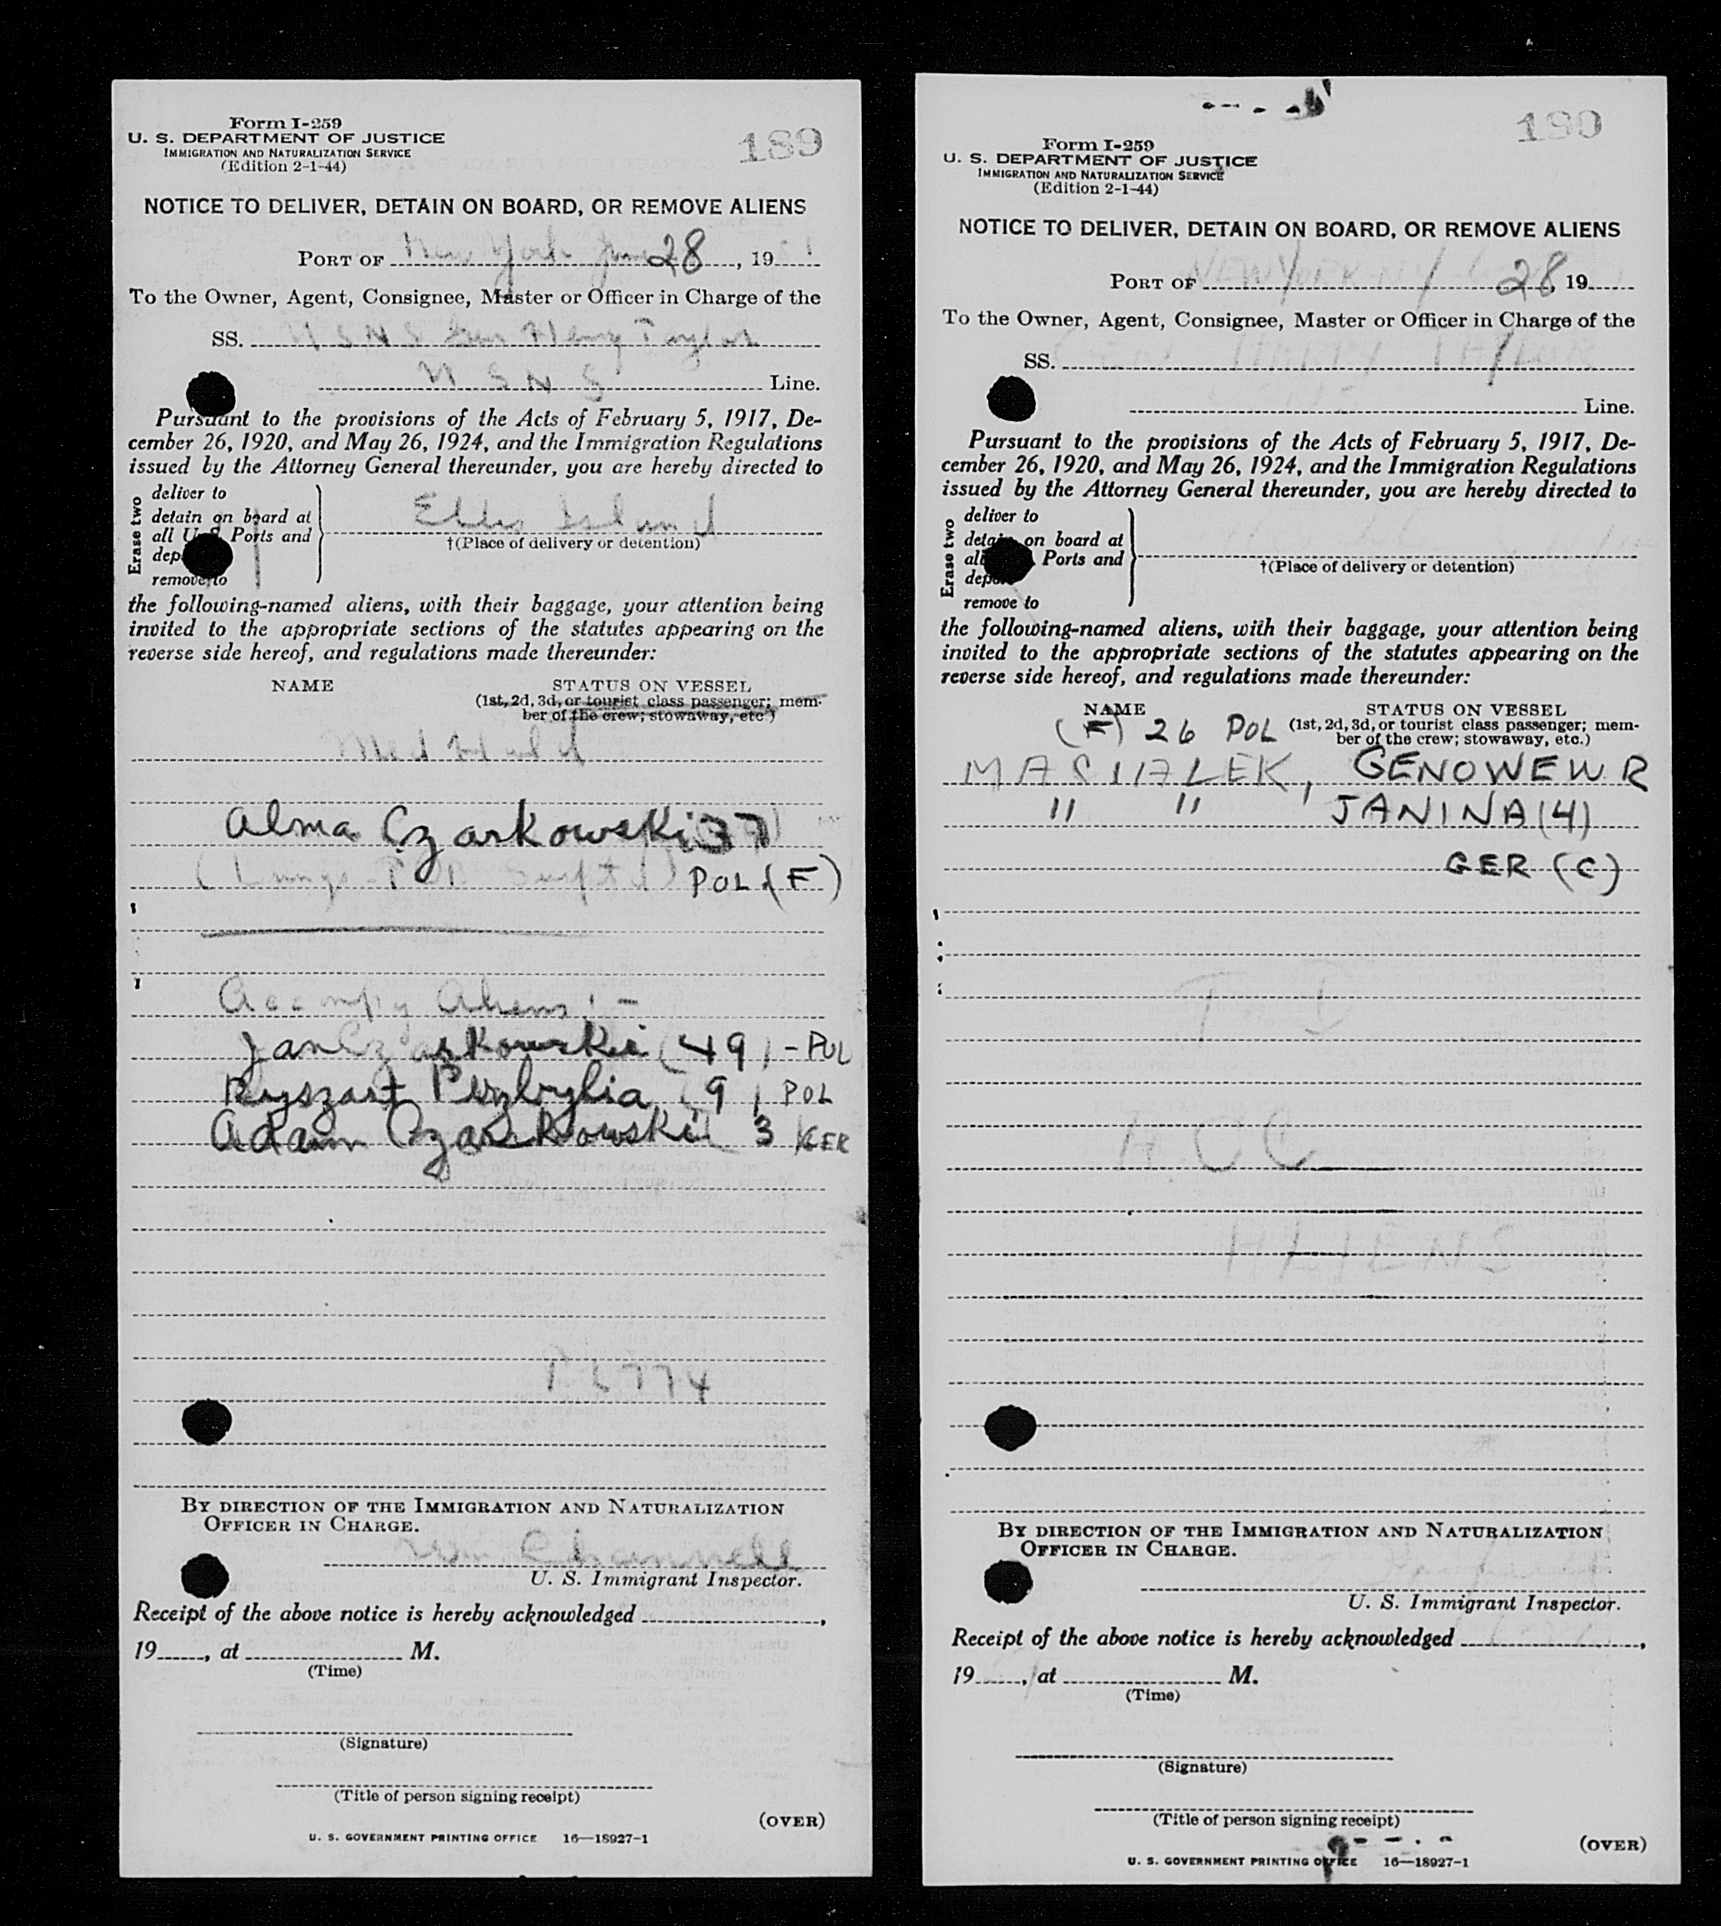 Form I-259
U. S. DEPARTMENT OF JUSTICE
IMMIGRATION AND NATURALIZATION SERVICE
(Edition 2-1-44)
189
NOTICE TO DELIVER, DETAIN ON BOARD, OR REMOVE ALIENS
PORT OF New York June 28, 19
To the Owner, Agent, Consignee, Master or Officer in Charge of the
SS. USNS Gen Henry Taylor
USNS Line.
Pursuant to the provisions of the Acts of February 5, 1917, De-
cember 26, 1920, and May 26, 1924, and the Immigration Regulations
issued by the Attorney General thereunder, you are hereby directed to
Erase two
deliver to
detain on board at
all U.S. Ports and
dep
remove to
Ellis Island
†(Place of delivery or detention)
the following-named aliens, with their baggage, your attention being
invited to the appropriate sections of the statutes appearing on the
reverse side hereof, and regulations made thereunder:
NAME STATUS ON VESSEL
(1st, 2d, 3d, or tourist class passenger; mem-
ber of the crew; stowaway, etc.)
Med Hold
Alma Czarkowski (37)
POL (F)
Accompy Aliens:-
Jan Czarkowski (49) - POL
Ryszart Przybylia (9) POL
Adam Czarkowski 3 GER
6774
BY DIRECTION OF THE IMMIGRATION AND NATURALIZATION
OFFICER IN CHARGE.
Channell
U. S. Immigrant Inspector.
Receipt of the above notice is hereby acknowledged
19, at M.
(Time)
(Signature)
(Title of person signing receipt)
(OVER)
U. S. GOVERNMENT PRINTING OFFICE 16—18927-1
Form I-259
U. S. DEPARTMENT OF JUSTICE
IMMIGRATION AND NATURALIZATION SERVICE
(Edition 2-1-44)
190
NOTICE TO DELIVER, DETAIN ON BOARD, OR REMOVE ALIENS
PORT OF NEW YORK NY 28 19
To the Owner, Agent, Consignee, Master or Officer in Charge of the
SS. GEN HARRY TAYLOR
Line.
Pursuant to the provisions of the Acts of February 5, 1917, De-
cember 26, 1920, and May 26, 1924, and the Immigration Regulations
issued by the Attorney General thereunder, you are hereby directed to
Erase two
deliver to
detain on board at
all Ports and
depo
remove to
†(Place of delivery or detention)
the following-named aliens, with their baggage, your attention being
invited to the appropriate sections of the statutes appearing on the
reverse side hereof, and regulations made thereunder:
NAME STATUS ON VESSEL
(F) 26 POL (1st, 2d, 3d, or tourist class passenger; mem-
ber of the crew; stowaway, etc.)
MACIALEK, GENOWEWR
" " , JANINA (4)
GER (C)
T. I
ACC
ALIENS
BY DIRECTION OF THE IMMIGRATION AND NATURALIZATION
OFFICER IN CHARGE.
U. S. Immigrant Inspector.
Receipt of the above notice is hereby acknowledged
19, at M.
(Time)
(Signature)
(Title of person signing receipt)
(OVER)
U. S. GOVERNMENT PRINTING OFFICE 16—18927-1